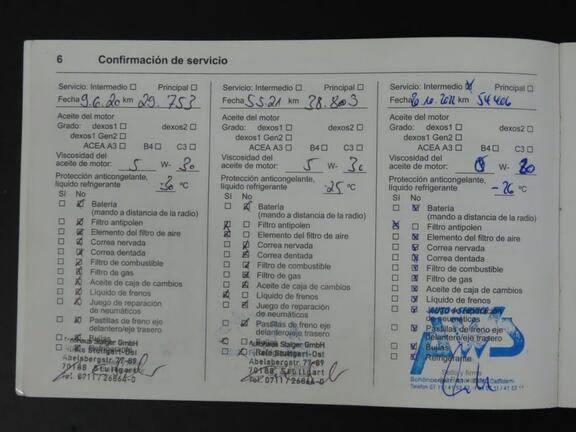 6 Confirmación de servicio
Servicio: Intermedio Principal
Fecha 9.6.20 km 29.753
Aceite del motor
Grado: dexos1 dexos2
dexos1 Gen2
ACEA A3 B4 C3
Viscosidad del
aceite de motor: 5 W- 30
Protección anticongelante,
líquido refrigerante -30 °C
Sí No
Batería
(mando a distancia de la radio)
Filtro antipolen
Elemento del filtro de aire
Correa nervada
Correa dentada
Filtro de combustible
Filtro de gas
Aceite de caja de cambios
Líquido de frenos
Juego de reparación
de neumáticos
Pastillas de freno eje
delantero/eje trasero
Bujías
Autohaus Staiger GmbH
Stuttgart-Ost
Abelsbergstr. 77-89
70188 Stuttgart
Tel. 0711/26864-0
Servicio: Intermedio Principal
Fecha 5.5.21 km 38.803
Aceite del motor
Grado: dexos1 dexos2
dexos1 Gen2
ACEA A3 B4 C3
Viscosidad del
aceite de motor: 5 W- 30
Protección anticongelante,
líquido refrigerante -25 °C
Sí No
Batería
(mando a distancia de la radio)
Filtro antipolen
Elemento del filtro de aire
Correa nervada
Correa dentada
Filtro de combustible
Filtro de gas
Aceite de caja de cambios
Líquido de frenos
Juego de reparación
de neumáticos
Pastillas de freno eje
delantero/eje trasero
Autohaus Staiger GmbH
Stuttgart-Ost
Abelsbergstr. 77-89
70188 Stuttgart
Tel. 0711/26864-0
Servicio: Intermedio Principal
Fecha km 54406
Aceite del motor
Grado: dexos1 dexos2
dexos1 Gen2
ACEA A3 B4 C3
Viscosidad del
aceite de motor: 0 W- 20
Protección anticongelante,
líquido refrigerante -26 °C
Sí No
Batería
(mando a distancia de la radio)
Filtro antipolen
Elemento del filtro de aire
Correa nervada
Correa dentada
Filtro de combustible
Filtro de gas
Aceite de caja de cambios
Líquido de frenos
AUTO SERVICE
de neumáticos
Pastillas de freno eje
delantero/eje trasero
Bujías
Refrigerante
Sello y firma